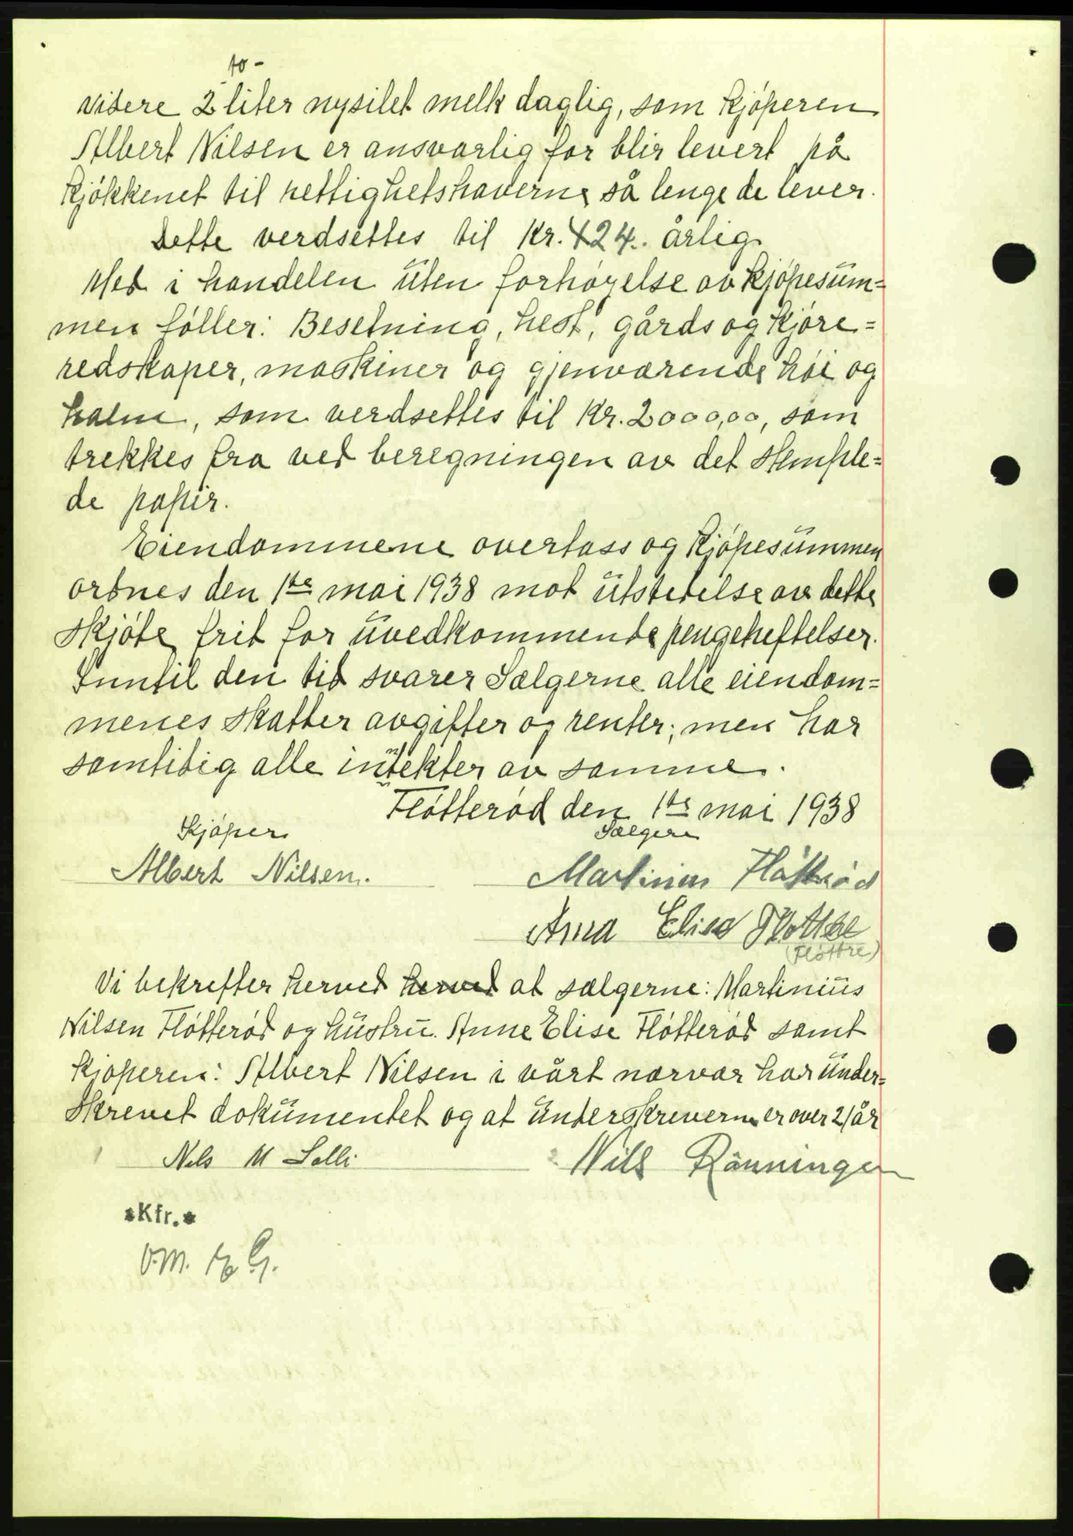 to-
videre 2 liter nysilet melk daglig, som kjøperen
Albert Nilsen er ansvarlig for blir levert på
kjøkkenet til rettighetshaverne så lenge de lever.
Dette verdsettes til Kr. 424.. årlig.
Med i handelen uten forhøyelse av kjøpesum=
men føller: Besetning, hest, gårds og kjøre=
redskaper, maskiner og gjenværende høi og
halm, som verdsettes til Kr. 2000,00, som
trekkes fra ved beregningen av det stemple=
de papir.
Eiendommene overtass og kjøpesummen
ordnes den 1ste mai 1938 mot utstedelse av dette
skjøte, frit for uvedkommende pengeheftelser.
Inntil den tid svarer Sælgerne alle eiendom=
menes skatter avgifter og renter; men har
samtidig alle inntekter av samme.
Fløtterød den 1ste mai 1938
Kjøper Sælgere
Albert Nilsen. Martinius Fløtterød
Anna Elise Fløttre
(Fløttre)
Vi bekrefter herved herved at sælgerne: Martinius
Nilsen Fløtterød og hustru Anne Elise Fløtterød samt
kjøperen: Albert Nilsen i vårt nærvær har under=
skrevet dokumentet og at underskriverne er over 21 år
Nels M Solli Nils Rønningen
*Kfr.*
O.M. EG.